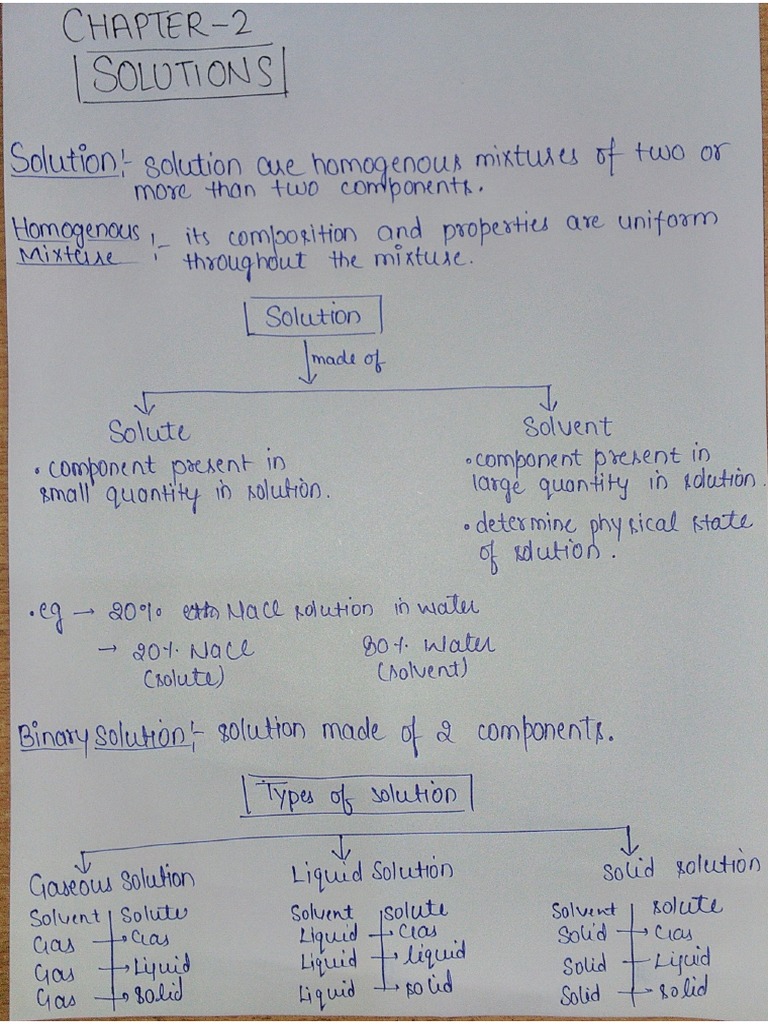 CHAPTER-2
SOLUTIONS
Solution:- solution are homogenous mixtures of two or
more than two components.
Homogenous
Mixture :- its composition and properties are uniform
throughout the mixture.
Solution
made of
Solute
• component present in
small quantity in solution.
Solvent
• component present in
large quantity in solution.
• determine physical state
of solution.
• eg → 20% NaCl solution in water
→ 20% NaCl 80% Water
(solute) (solvent)
Binary Solution:- solution made of 2 components.
Types of solution
Gaseous Solution
Solvent | Solute
Gas → Gas
Gas → Liquid
Gas → Solid
Liquid Solution
Solvent | solute
Liquid → Gas
Liquid → liquid
Liquid → solid
Solid solution
Solvent | solute
Solid → Gas
Solid → Liquid
Solid → solid